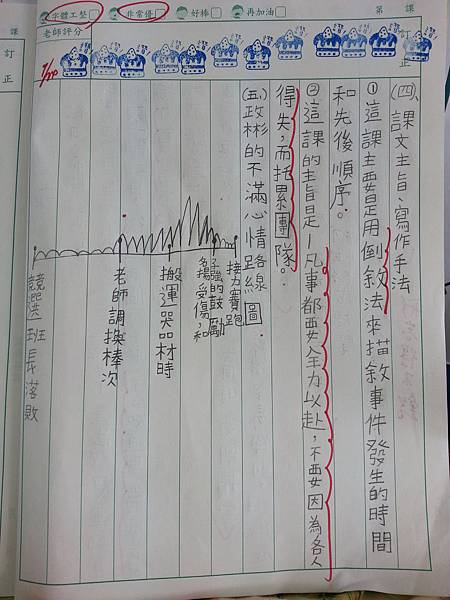 字體工整
非常優
好棒
再加油
第 課
老師評分
訂正
(四)課文主旨、寫作手法
①這課主要是用倒敘法來描敘事件發生的時間
和先後順序。
②這課的主旨是—凡事都要全力以赴,不要因為各人
得失,而托累團隊。
(五)政彬的不滿心情路線圖
接力賽跑
受傷,和
的鼓勵
搬運器材時
老師調換棒次
競選班長落敗
課
訂正